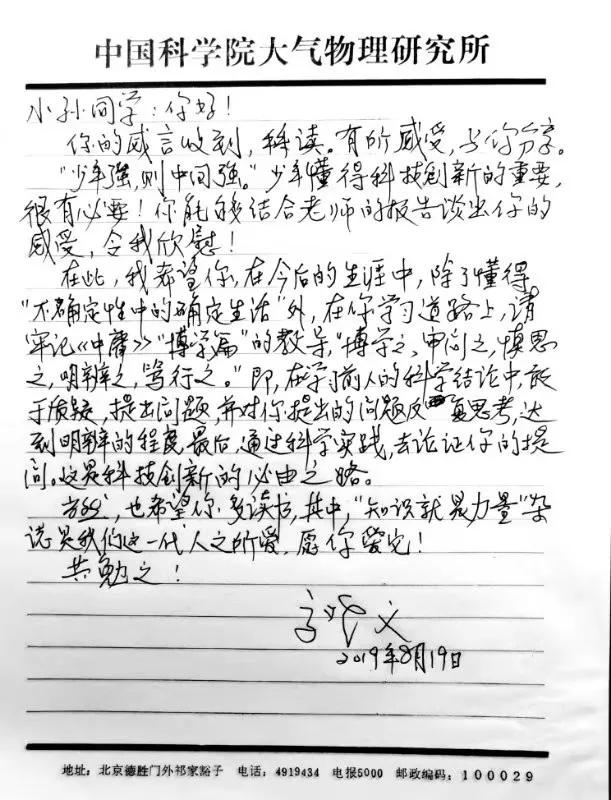 中国科学院大气物理研究所
小孙同学：你好！
你的感言收到，拜读。有所感受，与你分享。
"少年强，则中国强。"少年懂得科技创新的重要，
很有必要！你能够结合老师的报告谈出你的
感受，令我欣慰！
在此，我希望你，在今后的生涯中，除了懂得
"不确定性中的确定生活"外，在你学习道路上，请
牢记《中庸》"博学篇"的教导，"博学之，审问之，慎思
之，明辨之，笃行之。"即，在学习前人的科学结论中，敢
于质疑，提出问题，并对你提出的问题反复思考，达
到明辨的程度，最后，通过科学实践，去论证你的提
问。这是科技创新的必由之路。
为此，也希望你多读书，其中，"知识就是力量"杂
志是我们这一代人之所爱，愿你爱它！
共勉之！
2019年8月19日
地址：北京德胜门外祁家豁子 电话：4919434 电报5000 邮政编码：100029